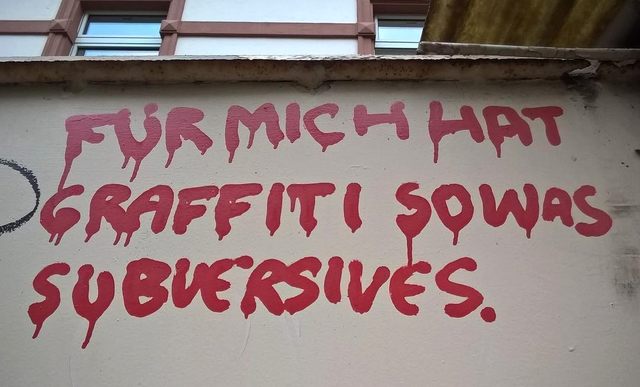 FÜR MICH HAT
GRAFFITI SOWAS
SUBVERSIVES.